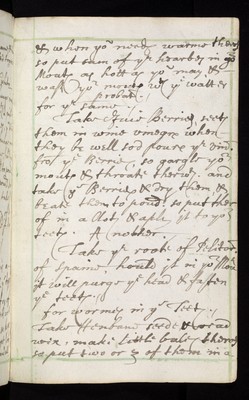 & when yo need warme them
so put sum of ye hearbes in yo
Mouth as hott as yo may &
wash yo mouth wt ye watter
probat.
for ye same
Take Ivie Berries seeth
them in wine vineger when
they be well sod poure ye vin:
from ye Berries, so gargle yo
mouth & throate therein. and
take ye Berries & dry them &
beate them to poudr so put ther
of in a Clot & aply it to yo
teeth. A nother.
Take ye roote of Pelitor
of spaine, hould it in yo Mouth
it will purge ye head & fasten
ye teeth.
for wormes in ye Teeth.
Take Henbane seede &
wex, make little bales therof
so put two or 3 of them in a